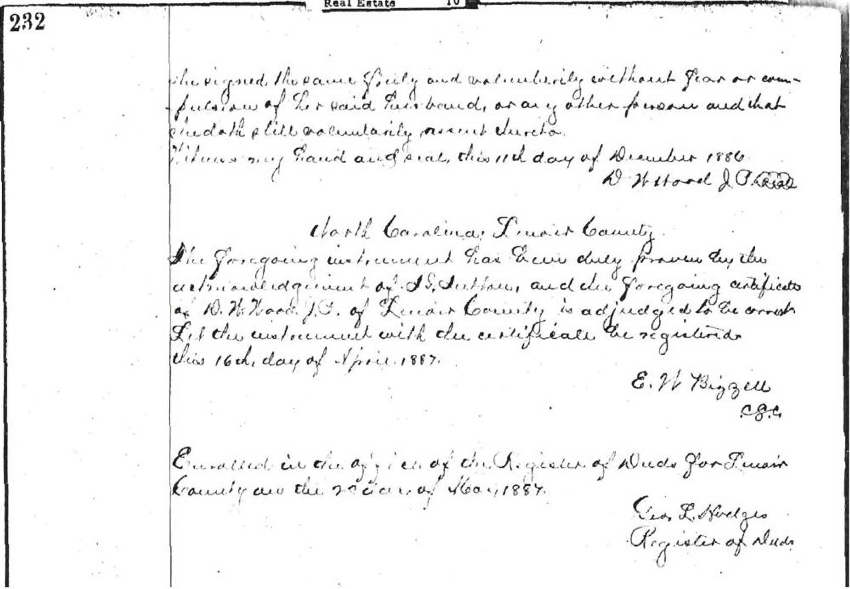 Real Estate 10
232
she signed the same freely and voluntarily without fear or com-
pulsion of her said husband, or any other person and that
she doth still voluntarily assent thereto.
Witness my hand and seal, this 11th day of December 1886
D. W Wood J P. (Seal)
North Carolina, Lenoir County
The foregoing instrument has been duly proven by the
acknowledgement of and the foregoing certificate
of D. W. Wood J.P. of Lenoir County is adjudged to be correct
Let the instrument with the certificate be registered
this 16th, day of April 1887.
E. W Bizzell
C.S.C.
Enrolled in the office of the Register of Deeds for Lenoir
County on the day of May, 1887.
Geo. L. Hodges
Register of Deeds